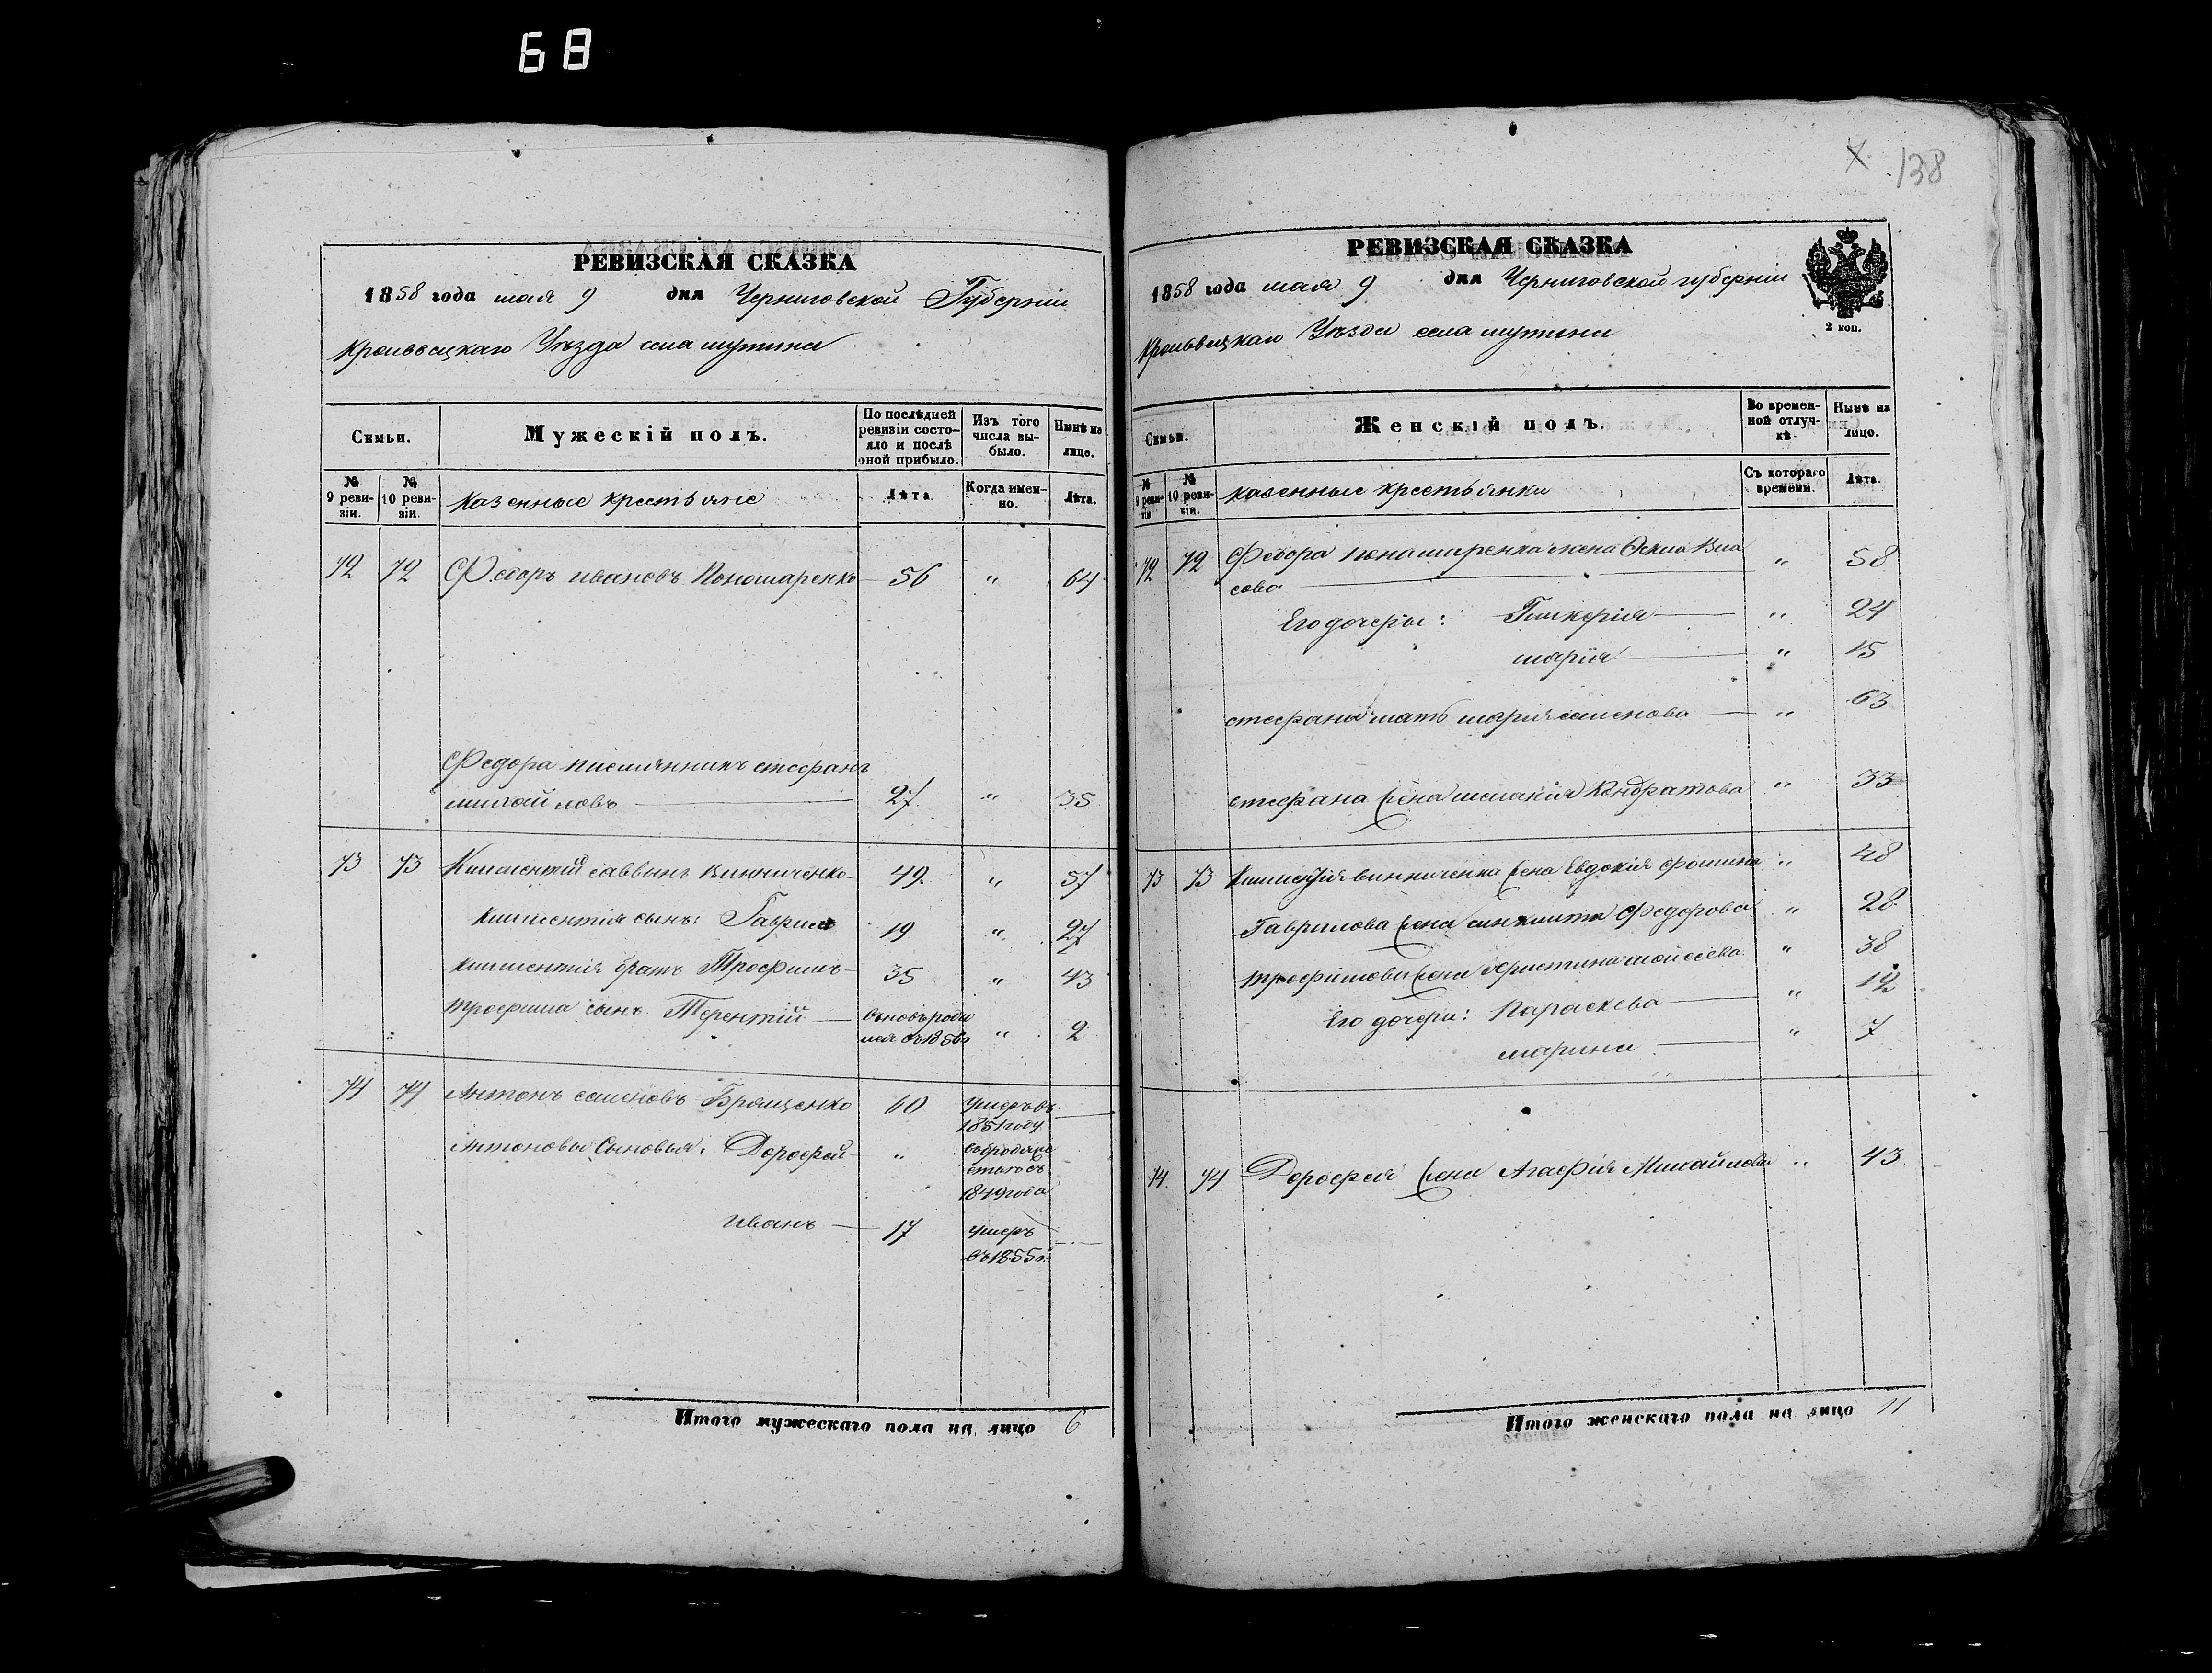 68
РЕВИЗСКАЯ СКАЗКА
1858 года мая 9 дня Черниговской Губерніи
Кролевецкаго Уѣзда села мутина
Семьи.
Мужескій полъ.
По послѣдней ревизіи состояло и послѣ оной прибыло.
Изъ того числа выбыло.
Нынѣ на лицо.
№ 9 ревизіи.
№ 10 ревизіи.
казенные крестьяне
Лѣта.
Когда именно.
Лѣта.
72 72 Федоръ ивановъ Пономаренко 56 " 64
Федора племянникъ стефанъ
михайловъ 27 " 35
73 73 Климентий саввинъ Винниченко 49 " 57
климентія сынъ: Гаврило 19 " 27
климентія братъ Трофимъ 35 " 43
трофима сынъ Терентій вновь роди 2
лся въ 1856
74 74 Антонъ семеновъ 60 умеръ въ
1851 году
Антоновы сыновья: Дорофей "
1849 года
иванъ 17 умеръ
въ 1855 г.
Итого мужескаго пола на лицо 6
X 138
РЕВИЗСКАЯ СКАЗКА
1858 года мая 9 дня Черниговской губерніи
Кролевецкаго Уѣзда села мутина
2 коп.
Семьи.
Женскій полъ.
Во временной отлучкѣ.
Нынѣ на лицо.
№ 9 ревизіи
№ 10 ревизіи.
казенные крестьянки
Съ котораго времени.
Лѣта.
72 72 Федора пономаренка жена Вла " 58
сова
Его дочери: Гликерія " 24
марія " 15
стефана мать марія семенова " 63
стефана жена меланія Кондратова " 33
73 73 Климентія винниченка жена Евдокія фомина " 48
Гаврилова жена Федорова " 28
трофимова жена христина мойсеева " 38
Его дочери: Параскева " 12
марина " 7
74 74 Дорофея жена Агафія Михайлова " 43
Итого женскаго пола на лицо 11